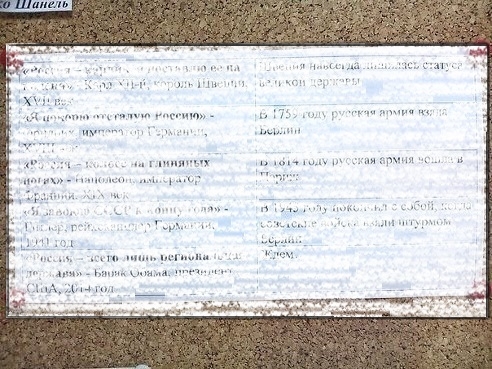 ко Шанель
«Россия –
Карл XII-й, король Швеции,
XVII век
Швеция навсегда лишилась статуса
великой державы
«Я покорю отсталую Россию» -
император Германии,
В 1759 году русская армия взяла
Берлин
«Россия – колосс на глиняных
ногах» - Наполеон, император
Франции, XIX век
В 1814 году русская армия вошла в
Париж
«Я завоюю СССР к концу года» -
Гитлер, рейхсканцлер Германии,
1941 год
В 1945 году покончил с собой, когда
советские войска взяли штурмом
Берлин
«Россия – всего лишь региональная
держава» - Барак Обама, президент
США, 2014 год
Ждем.